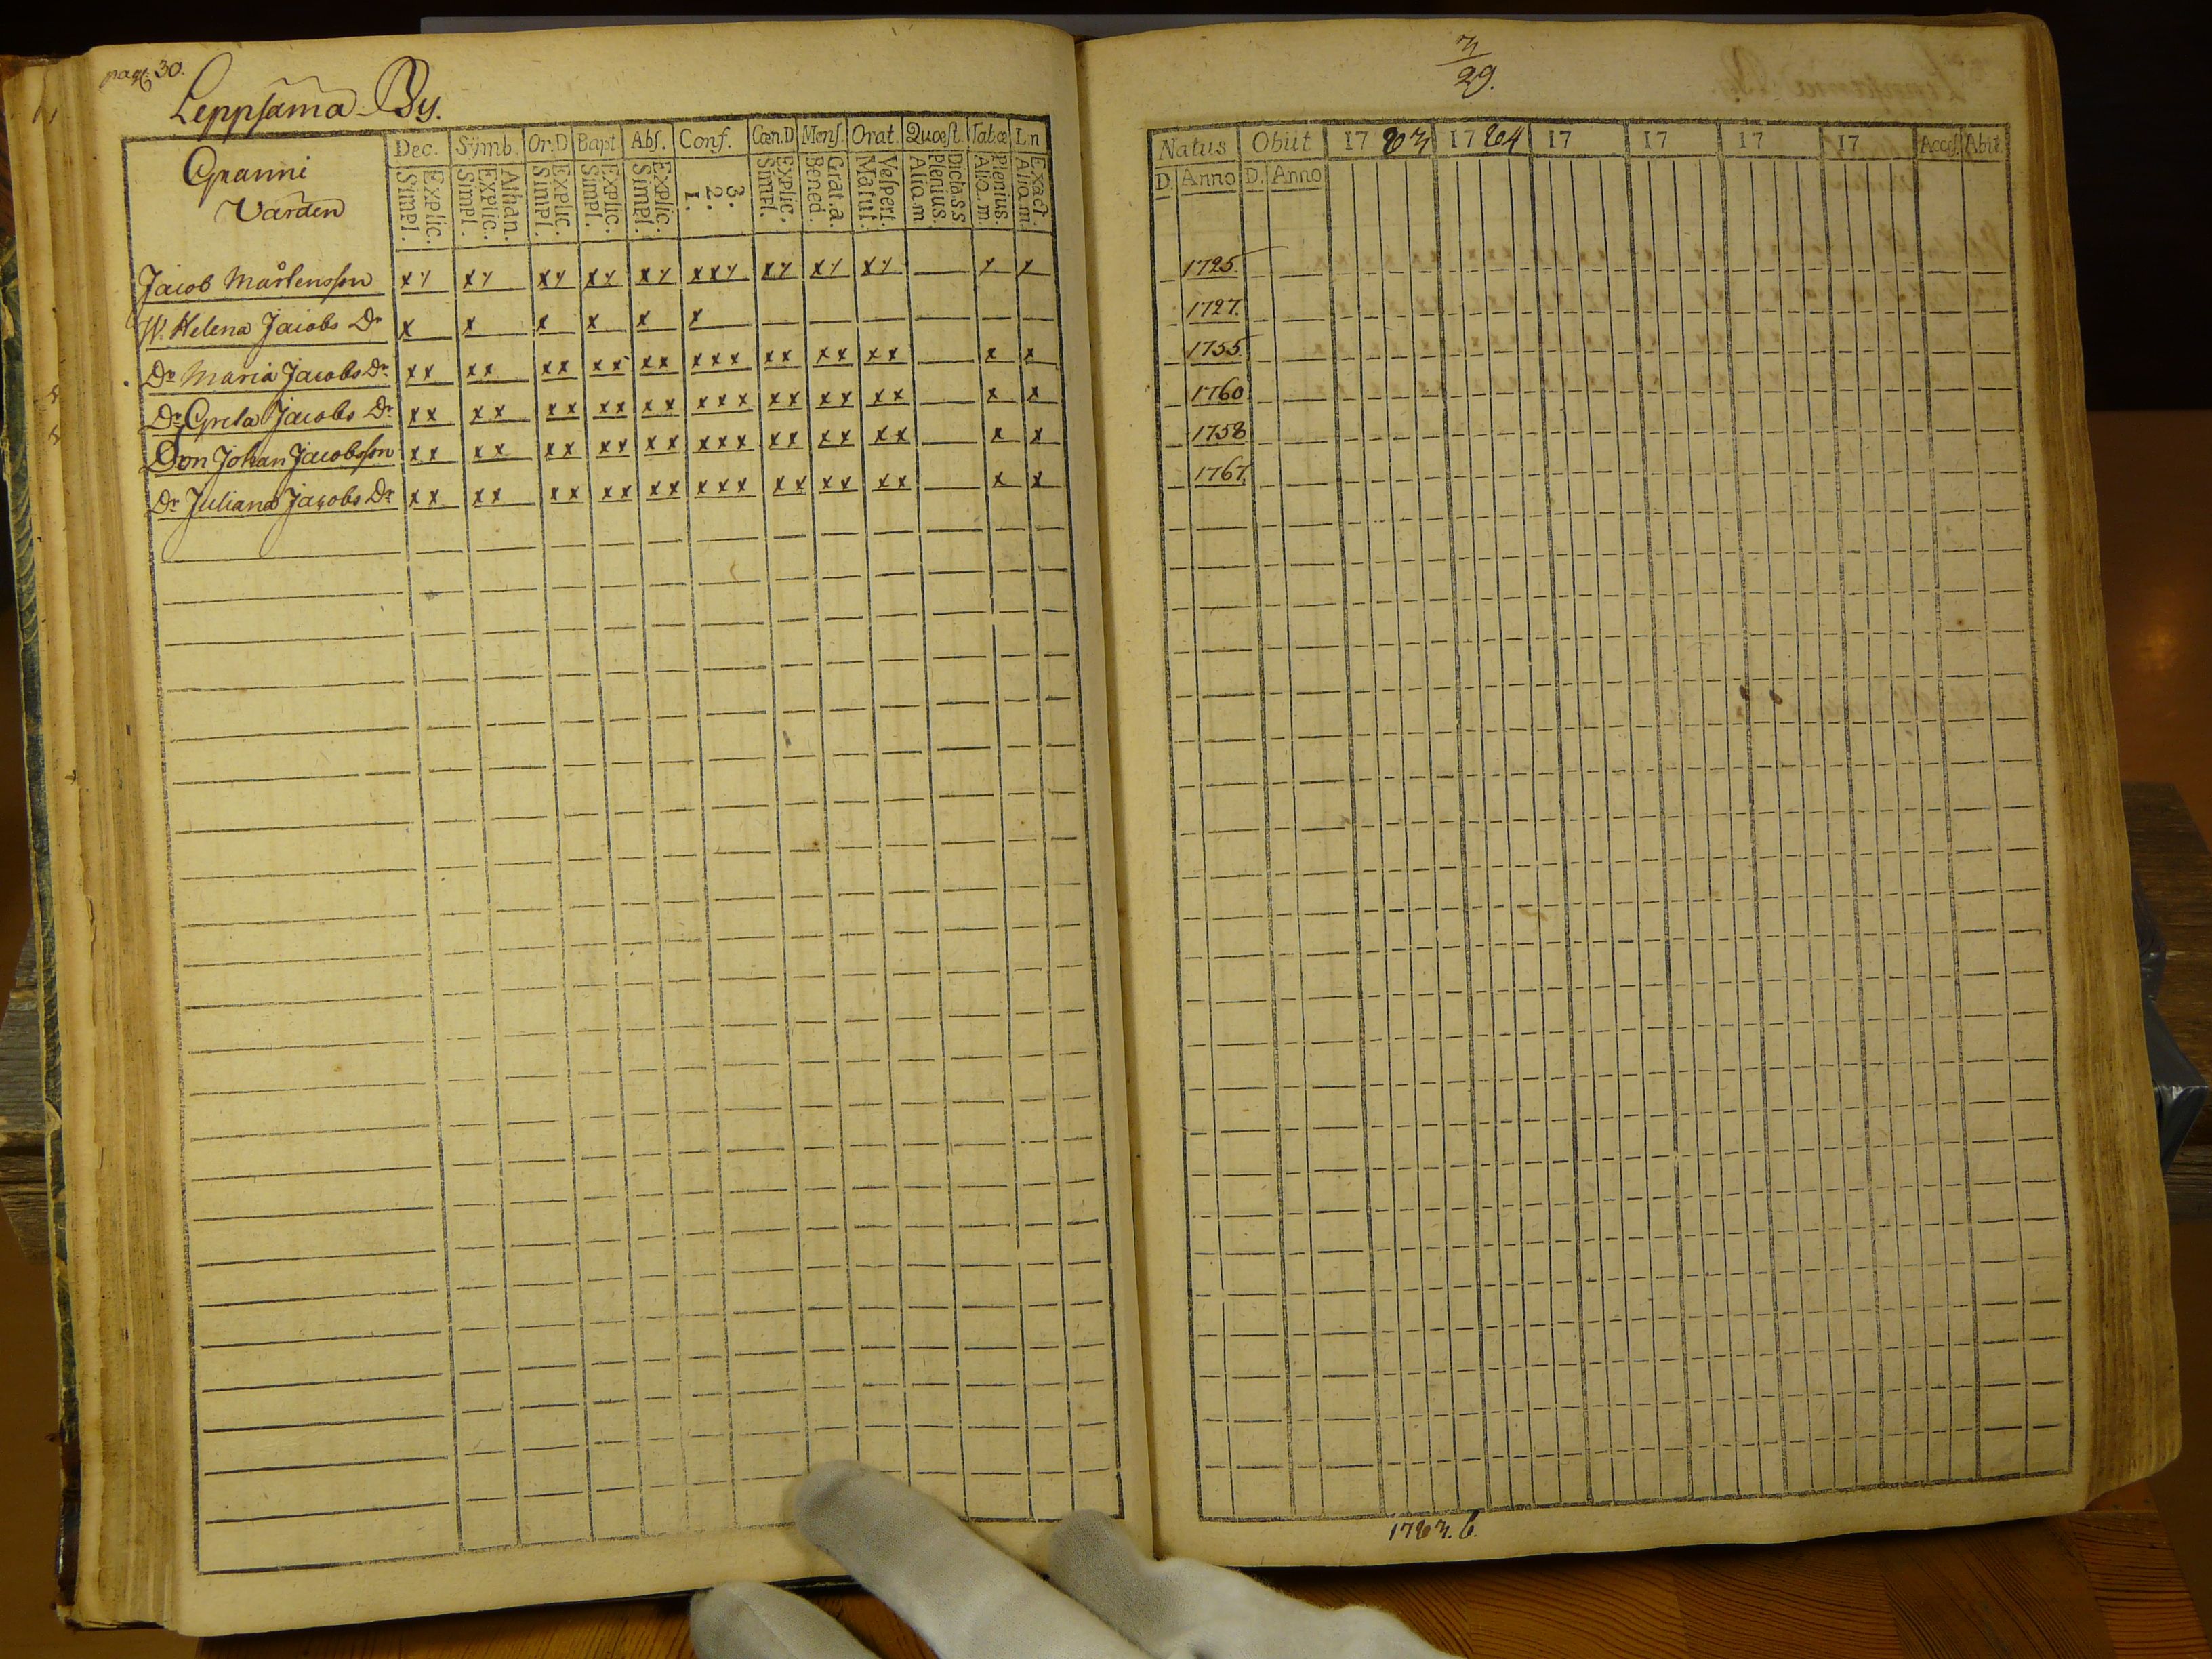 pag: 30.
Leppsama By.
Granni
Varden
Dec. Symb. Or.D Bapt. Abſ. Conf. Cœn.D Menſ. Orat. Quæſt. Tab.œ L.n
Simpl. Explic. Simpl. Explic. Athan. Simpl. Explic. Simpl. Explic. Simpl. Explic. 1. 2. 3. Simpl. Explic. Bened. Grat.a. Matut. Veſpert. Alio.m Plenius. Dictass Alio.m. Plenius. Alio.m. Exact.
Jacob Mårtensson
W. Helena Jacobs Dr
Dr Maria Jacobs Dr
Dr Greta Jacobs Dr
Son Johan Jacobsson
Dr Juliana Jacobs Dr
29.
Natus Obiit 17 83 17 84 17 17 17 17 Acceſ. Abit
D. Anno D. Anno
1725.
1727.
1755.
1760
1758
1767.
1783. 6.